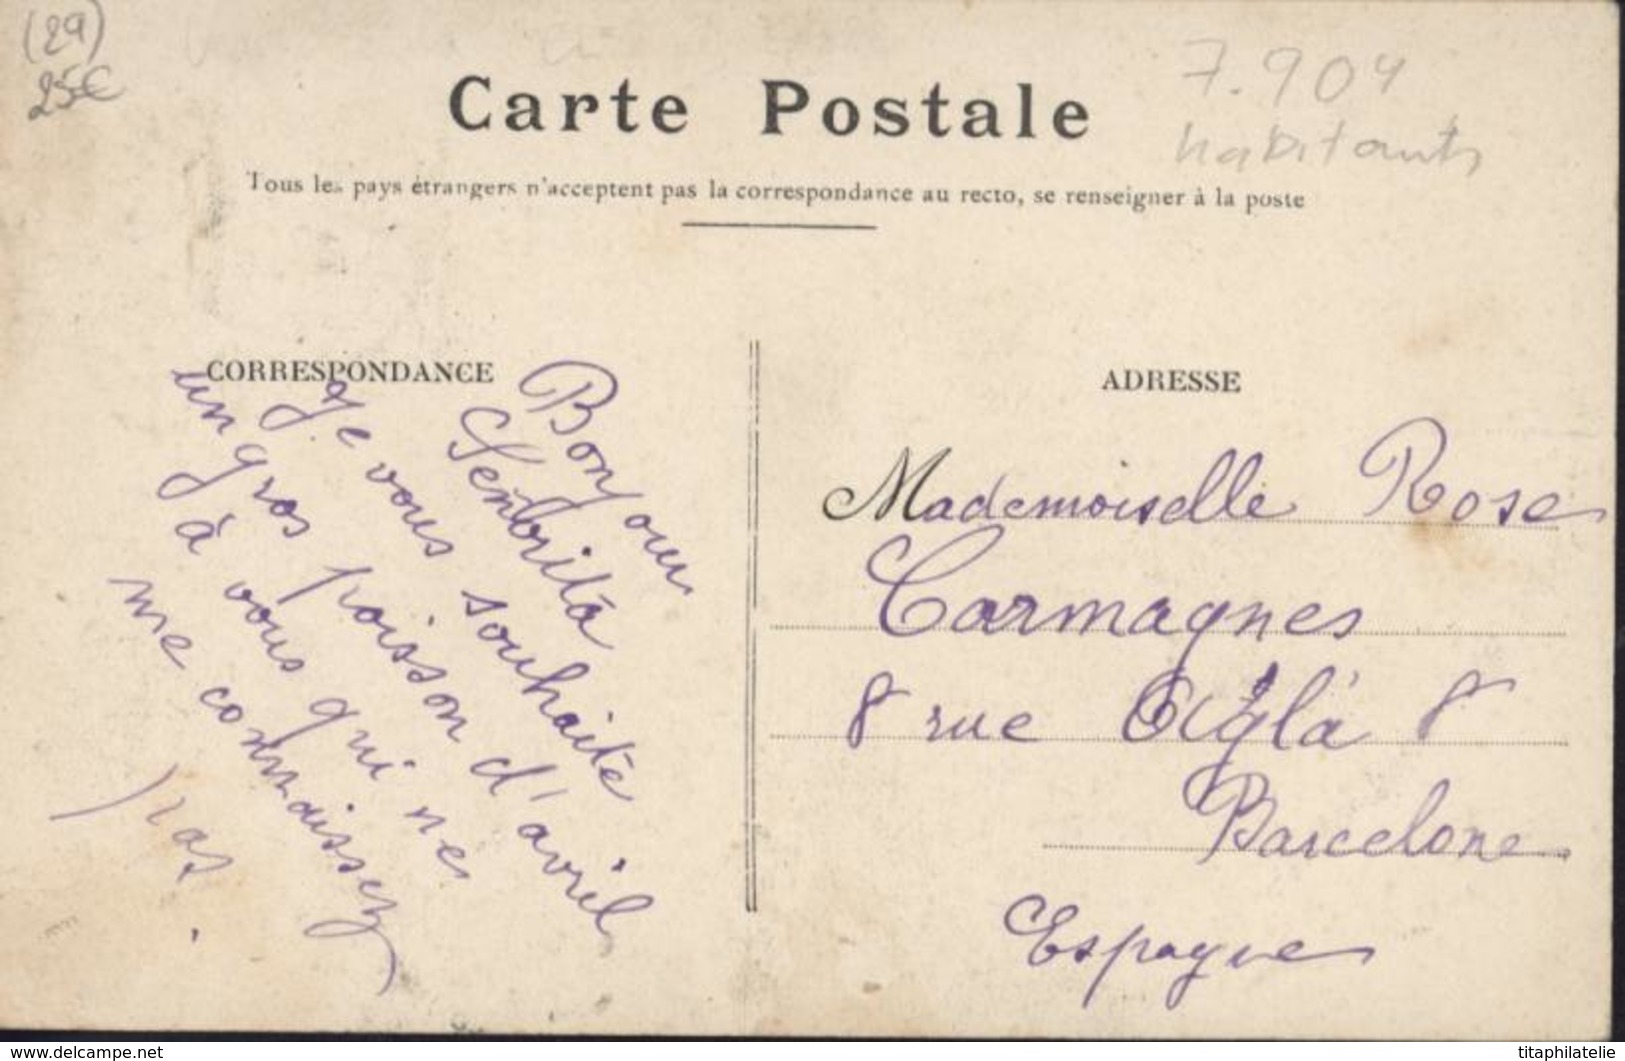 (29)
25€
7.904
habitants
Carte Postale
Tous les pays étrangers n'acceptent pas la correspondance au recto, se renseigner à la poste
CORRESPONDANCE
Bonjour
Senorita
Je vous souhaite
un gros poisson d'avril
à vous qui ne
me connaissez
pas.
ADRESSE
Mademoiselle Rose
Carmagnes
8 rue Aglà 8
Barcelone
Espagne
www.delcampe.net
titaphilatelie